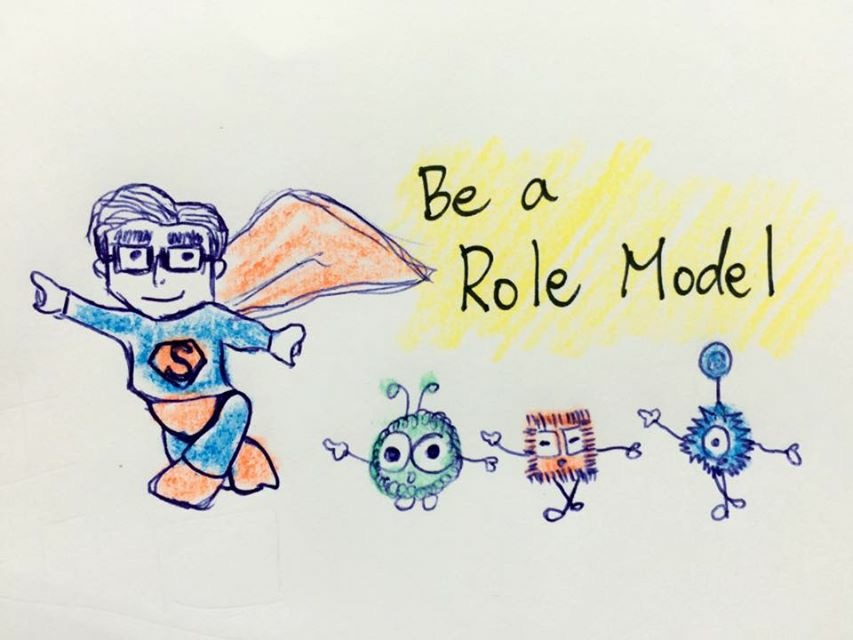 Be a
Role Model
S